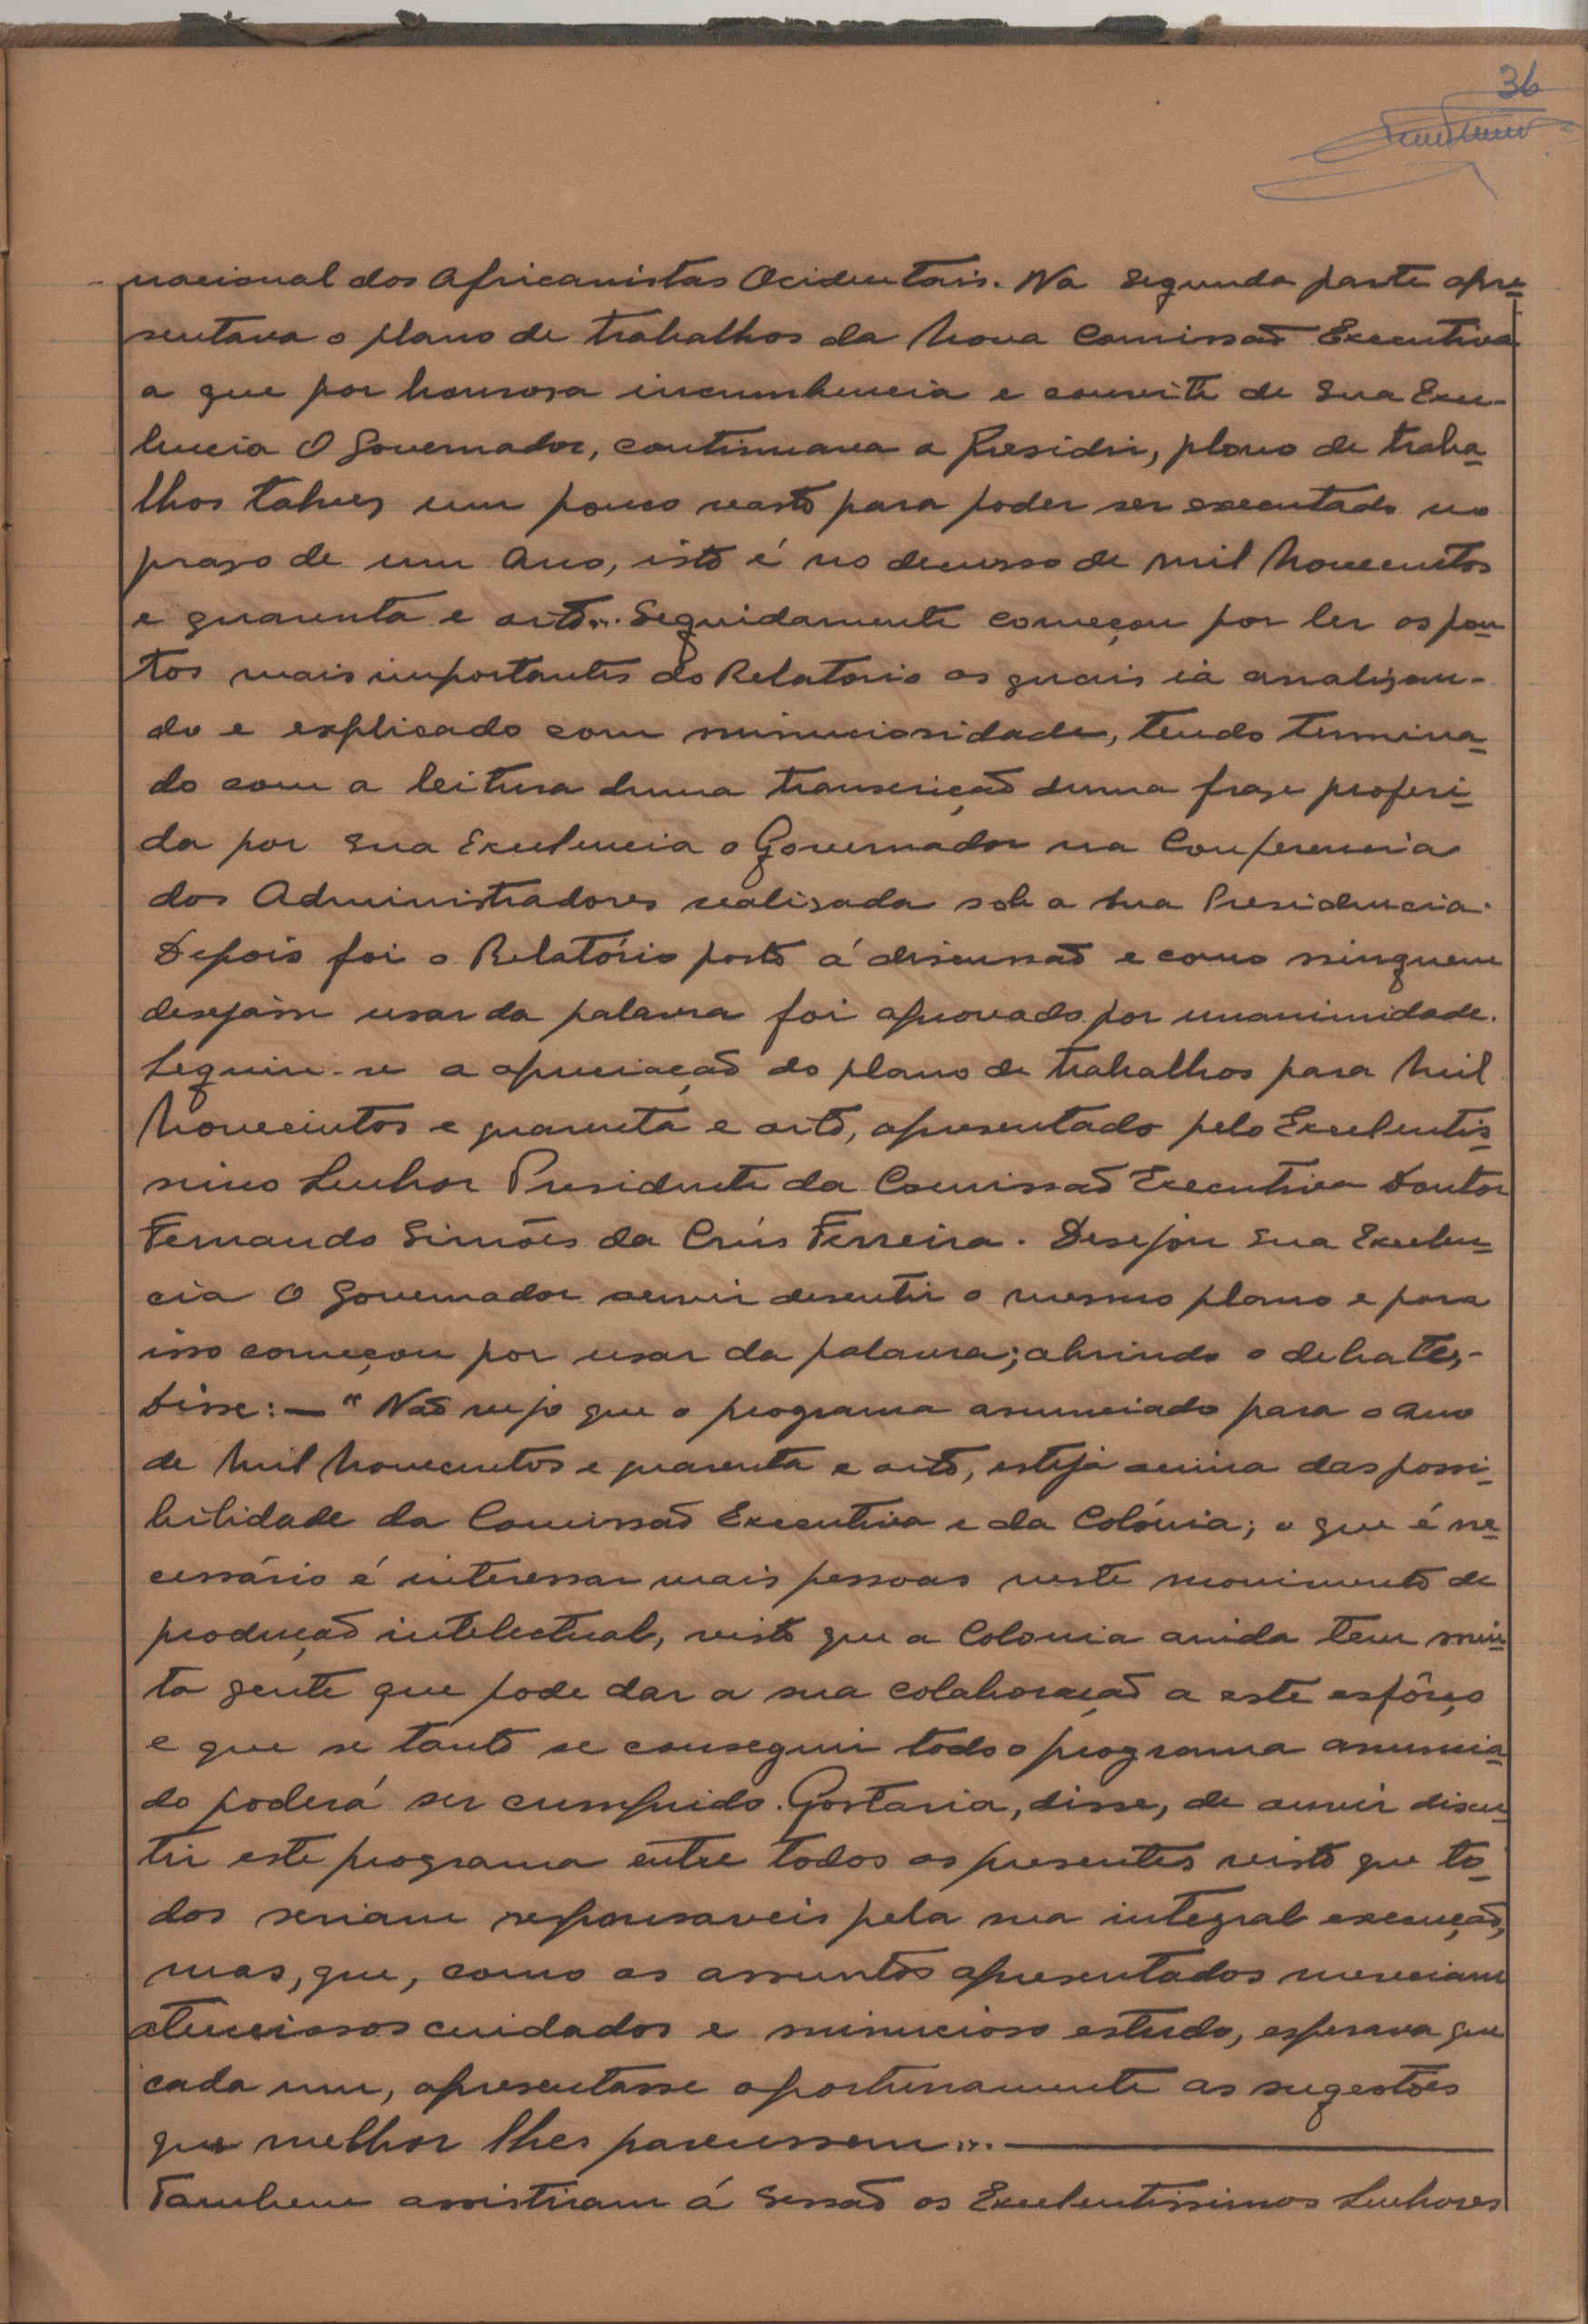 36
nacional dos Africanistas Ocidentais. Na segunda parte apre-
sentava o plano de trabalhos da nova Comissão Executiva
a que por honrosa incumbencia e convite de Sua Exce-
lencia O Governador, continuava a Presidir, plano de traba-
lhos talvez um pouco vasto para poder ser executado no
prazo de um ano, isto é no decurso de mil novecentos
e quarenta e oito". Seguidamente começou por ler os pon-
tos mais importantes do Relatorio os quais ia analizan-
do e explicado com minuciosidade, tendo termina-
do com a leitura duma transcrição duma fraze proferi-
da por Sua Excelencia o Governador na Conferencia
dos Administradores realisada sob a sua Presidencia.
Depois foi o Relatório posto á discussão e como ninguem
desejasse usar da palavra foi aprovado por unanimidade.
Seguiu-se a apreciação do plano de trabalhos para mil
novecentos e quarenta e oito, apresentado pelo Excelentis-
simo Senhor Presidente da Comissão Executiva Doutor
Fernando Simões da Crús Ferreira. Desejou Sua Excelen-
cia O Governador ouvir descutir o mesmo plano e para
isso começou por usar da palavra; abrindo o debate,-
Disse:- "Não vejo que o programa anunciado para o ano
de mil novecentos e quarenta e oito, esteja acima das possi-
bilidade da Comissão Executiva e da Colónia; o que é ne-
cessário é interessar mais pessoas neste movimento de
produção intelectual, visto que a Colonia ainda tem mui-
ta gente que pode dar a sua colaboração a este esfôrço
e que se tanto se conseguir todo o programa anuncia-
do poderá ser cumprido. Gostaria, disse, de ouvir discu-
tir este programa entre todos os presentes visto que to-
dos seriam responsaveis pela sua integral execução,
mas, que, como os assuntos apresentados mereciam
atenciosos cuidados e minucioso estudo, esperava que
cada um, apresentasse oportunamente as sugestões
que melhor lhes parecessem".
Tambem assistiram á Sessão os Excelentissimos Senhores